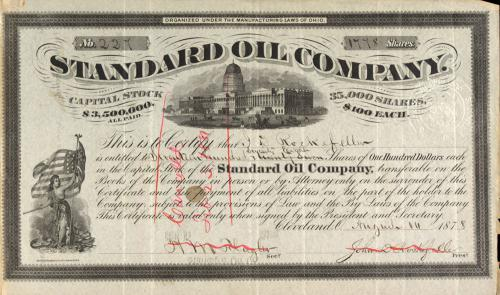 ORGANIZED UNDER THE MANUFACTURING LAWS OF OHIO.
No. 227
1778 Shares.
STANDARD OIL COMPANY.
CAPITAL STOCK
$3,500,000.
ALL PAID
35,000 SHARES.
$100 EACH.
This is to Certify that J. D. Rockefeller
is entitled to Seventeen Hundred Seventy Eight Shares of One Hundred Dollars each
in the Capital Stock of the Standard Oil Company, transferable on the
Books of the Company in person or by Attorney only on the surrender of this
Certificate and the payment of all liabilities on the part of the holder to the
Company, subject to the provisions of Law and the By Laws of the Company.
This Certificate is valid only when signed by the President and Secretary.
Cleveland O. August 14 1878
Secy.
John D Rockefeller
Prest.